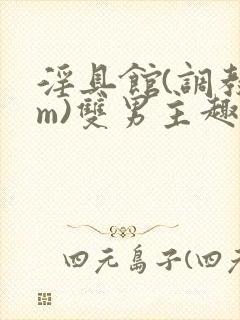 淫具館(調教
m)雙男主趣
四元島子(四元